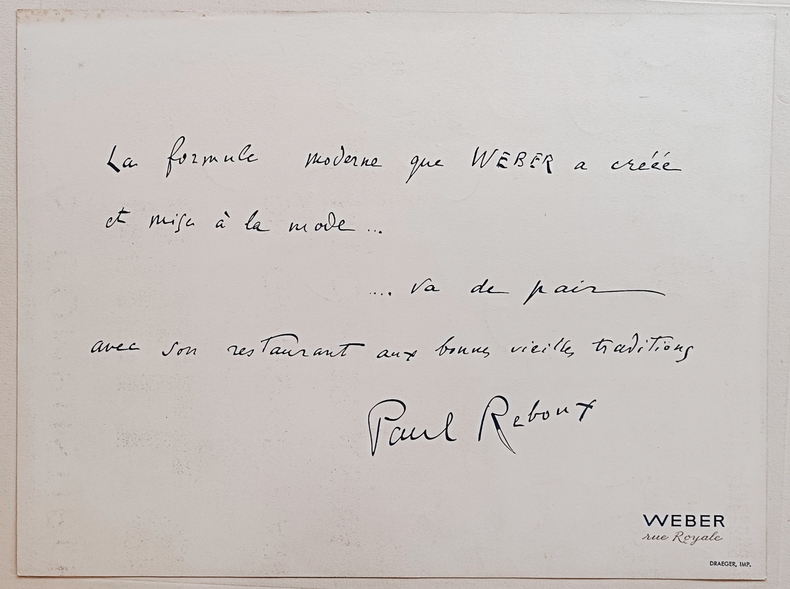 La formule moderne que WEBER a créée
et mise à la mode...
.... va de pair
avec son restaurant aux bonnes vieilles traditions
Paul Reboux
WEBER
rue Royale
DRAEGER, IMP.